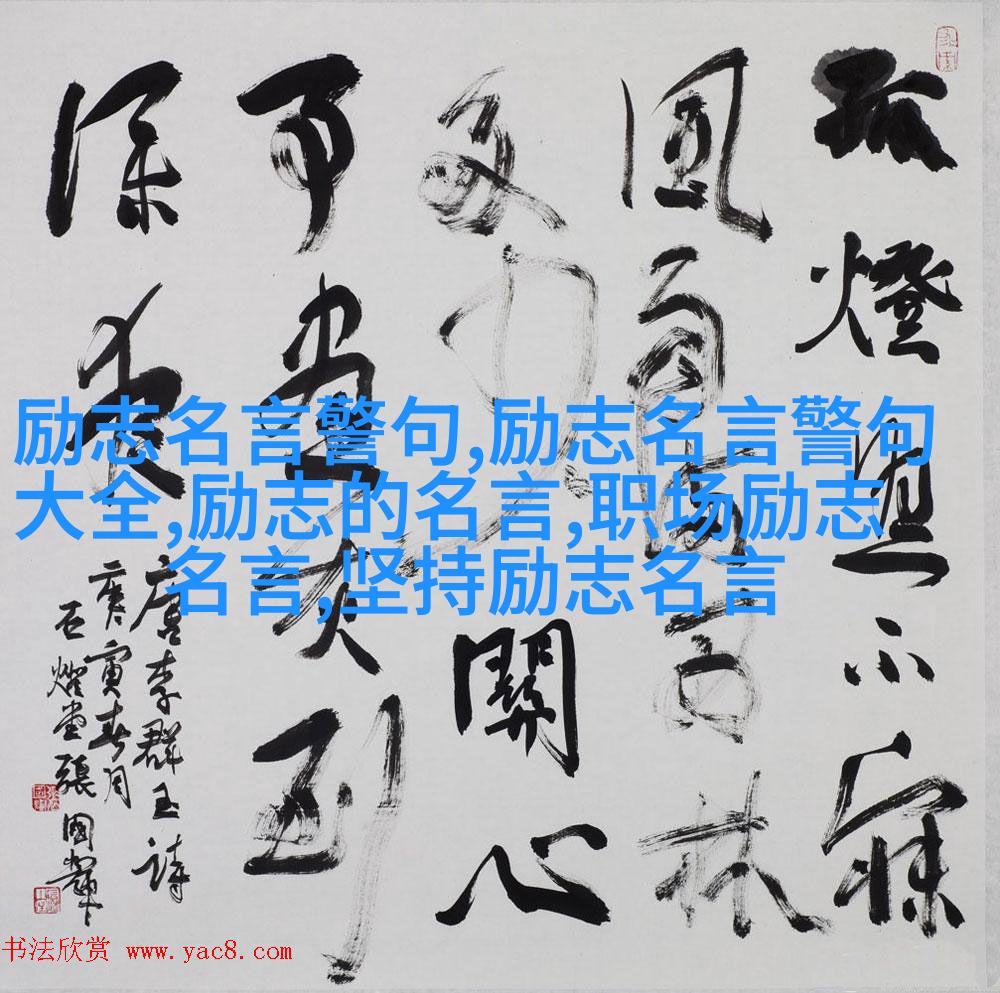 孤燈照不寐
風雨滿西林
多少關心
事書灰到
深夜
唐李群玉詩
庚寅春月
石堂張國輝
励志名言警句,励志名言警句
大全,励志的名言,职场励志
名言,坚持励志名言
书法欣赏 www.yac8.com